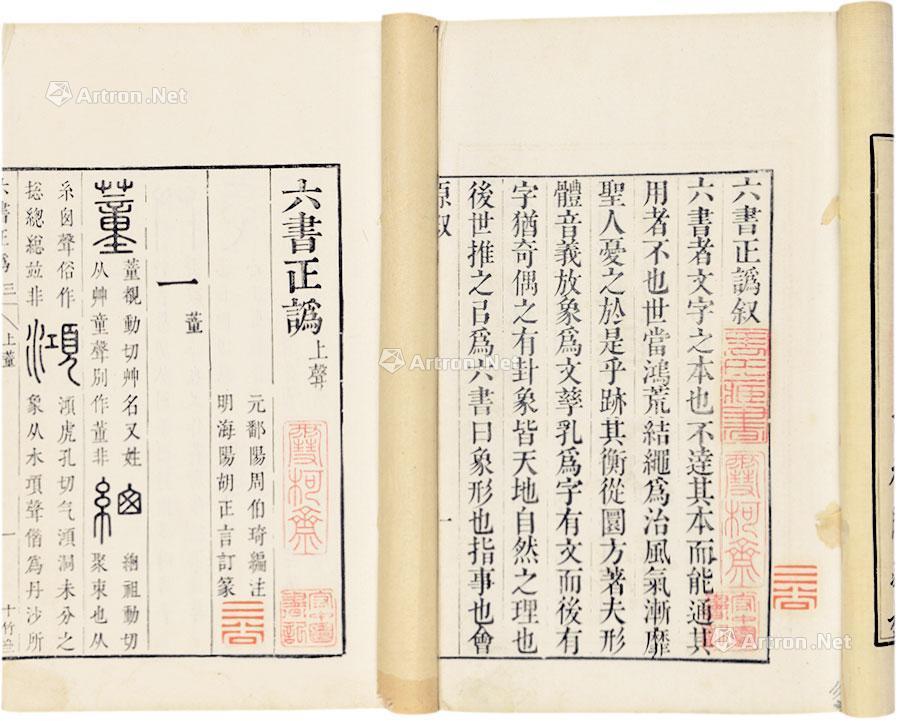 六書正譌叙
六書者文字之本也不達其本而能通其
用者不也世當鴻荒結繩爲治風氣漸靡
聖人憂之於是乎跡其衡從圜方著夫形
體音義放象爲文孳乳爲字有文而後有
字猶奇偶之有卦象皆天地自然之理也
後世推之㠯爲六書曰象形也指事也會
原叙
一
六書正譌上聲
元鄱陽周伯琦編注
明海陽胡正言訂篆
一
董
董 董覩動切艸名又姓
从艸童聲別作董非 緫 緫祖動切
聚束也从
糸囪聲俗作
捴總緫竝非 澒 澒虎孔切气澒洞未分之
象从水項聲偕爲丹沙所
六書正譌三
上董
一
十竹齋
Artron.Net
Artron.Net
Artron.Net
Artron.Net